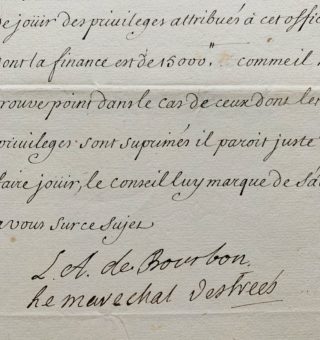 de joüir des privileges attribués à cet offic
dont la finance est de 15000." comme il
trouve point dans le cas de ceux dont les
privileges sont suprimés il paroit juste
faire joüir, le conseil luy marque de sa
a vous sur ce sujet
L. A. de Bourbon
Le marechal destreés